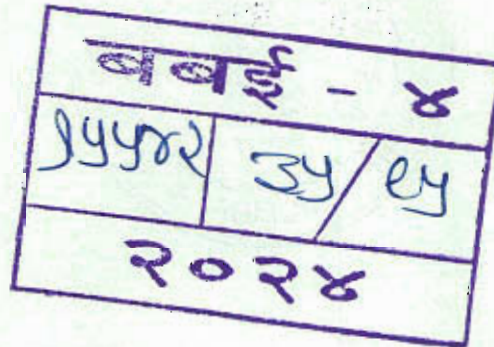 बबई - ४
१५५४२ ३५/९५
२०२४